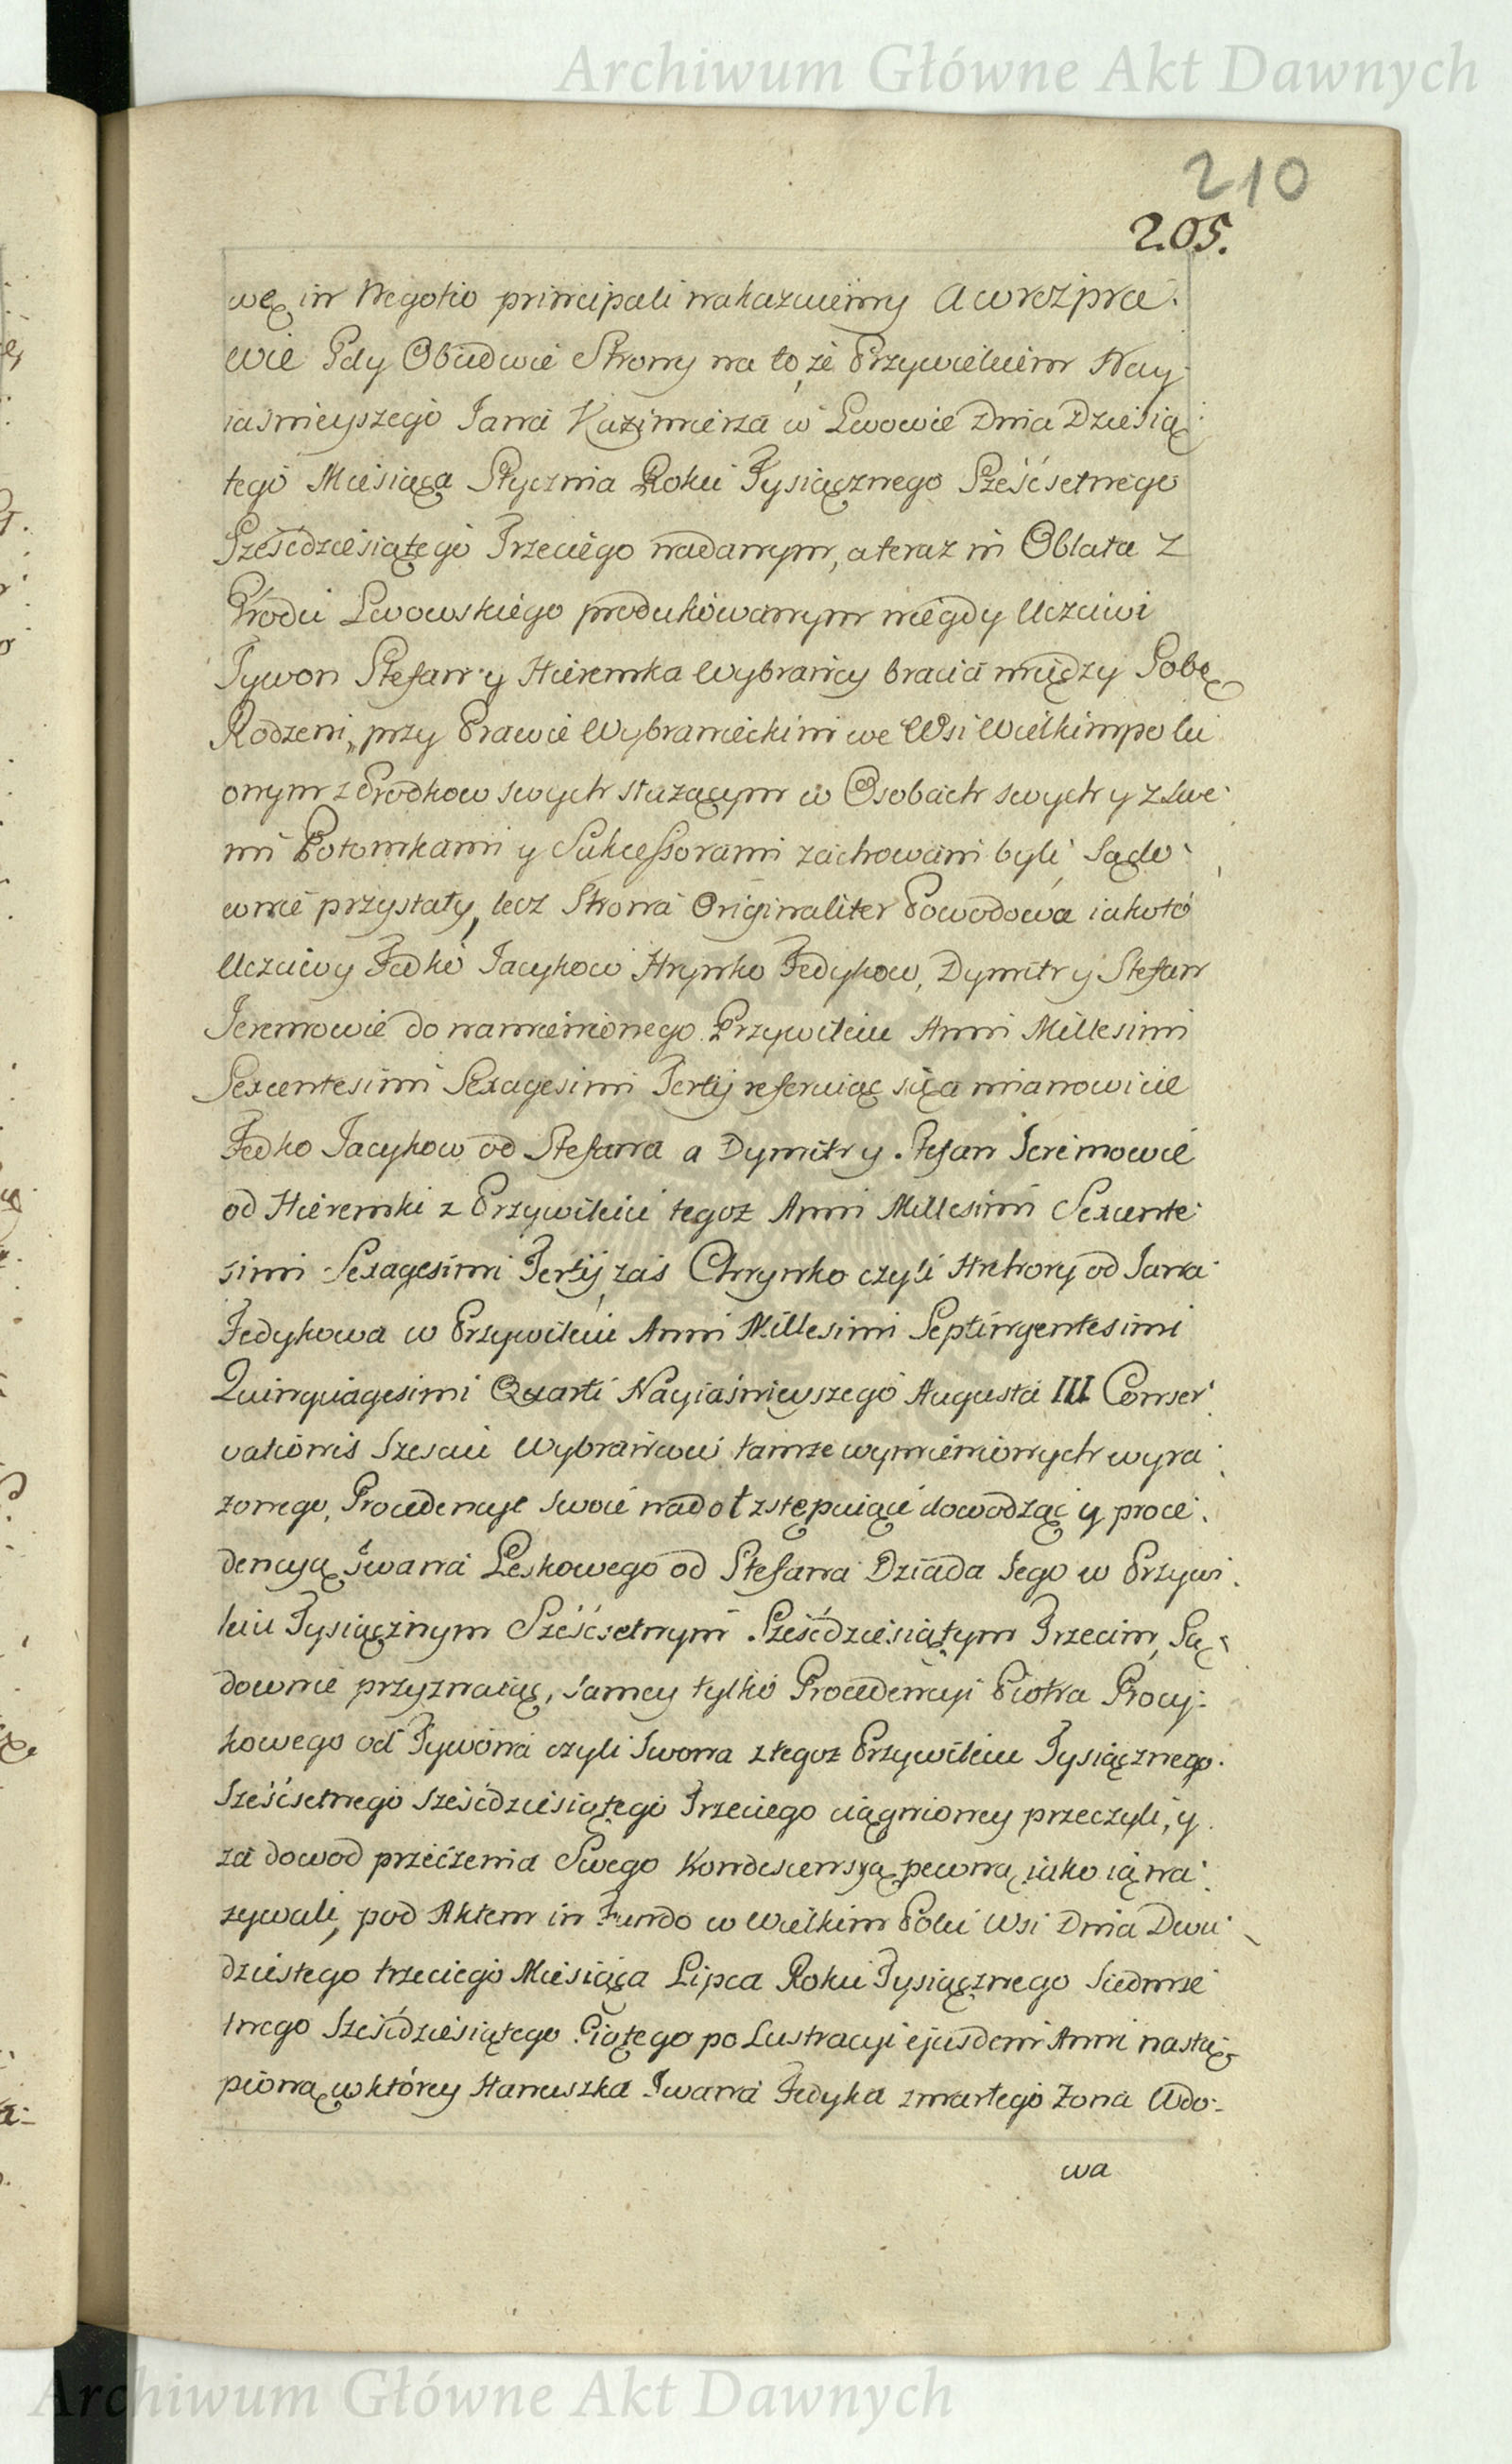 Archiwum Główne Akt Dawnych
210
205.
wę in Negotio principali nakazuiemy a w rozpra-
wie Gdy Obiedwie Strony na to, że Przywileiem Nay-
iaśnieyszego Jana Kazimierza w Lwowie Dnia Dziesią-
tego Miesiąca Stycznia Roku Tysiącznego Sześćsetnego
Sześćdziesiątego Trzeciego nadanym, a teraz in Oblata z
Grodu Lwowskiego produkowanym niegdy Uczciwi
Tywon Stefan y Hieremka Wybrańcy bracia między Sobą
Rodzeni, przy Prawie Wybranieckim we Wsi Wielkimpolu
onym z Przodkow swych służącym w Osobach swych y z Swe-
mi Potomkami y Sukcessorami zachowani byli, Sądo-
wnie przystały, lecz Strona Originaliter Powodowa iakoto
Uczciwy Fedko Jacykow Hrynko Fedykow, Dymitr y Stefan
Jeremowie do namienionego Przywileiu Anni Millesimi
Sexcentesimi Sexagesimi Tertij referuiąc się a mianowicie
Fedko Jacykow od Stefana a Dymitr y Stefan Jeremowie
od Hieremki z Przywileiu tegoz Anni Millesimi Sexcente-
simi Sexagesimi Tertij, zaś Chrynko czyli Hrehory od Jana
Fedykowa w Przywileiu Anni Millesimi Septingentesimi
Quinquagesimi Quarti Nayiaśnieyszego Augusta III Conser-
vationis Sześciu Wybrańcow tamże wymienionych wyra-
żonego, Procedencye swoie nadoł zstępuiące dowodząc y proce-
dencyą Iwana Leskowego od Stefana Dziada Jego w Przywi-
leiu Tysiącznym Sześćsetnym Sześćdziesiątym Trzecim, Są-
downie przyznaiąc, samey tylko Procedencyi Piotra Procy-
kowego od Tywona czyli Iwona z tegoz Przywileiu Tysiącznego
Sześćsetnego Sześćdziesiątego Trzeciego ciągnioney przeczyli, y
za dowod przeczenia Swego Kondescensyą pewną, iako ią na-
zywali, pod Aktem in Fundo w Wielkim Polu Wsi Dnia Dwu-
dziestego trzeciego Miesiąca Lipca Roku Tysiącznego Siedmse-
tnego Sześćdziesiątego Piątego po Lustracyi ejusdem Anni nastą-
pioną, w którey Hanuszka Iwana Fedyka zmarłego Żona Wdo-
wa
Archiwum Główne Akt Dawnych